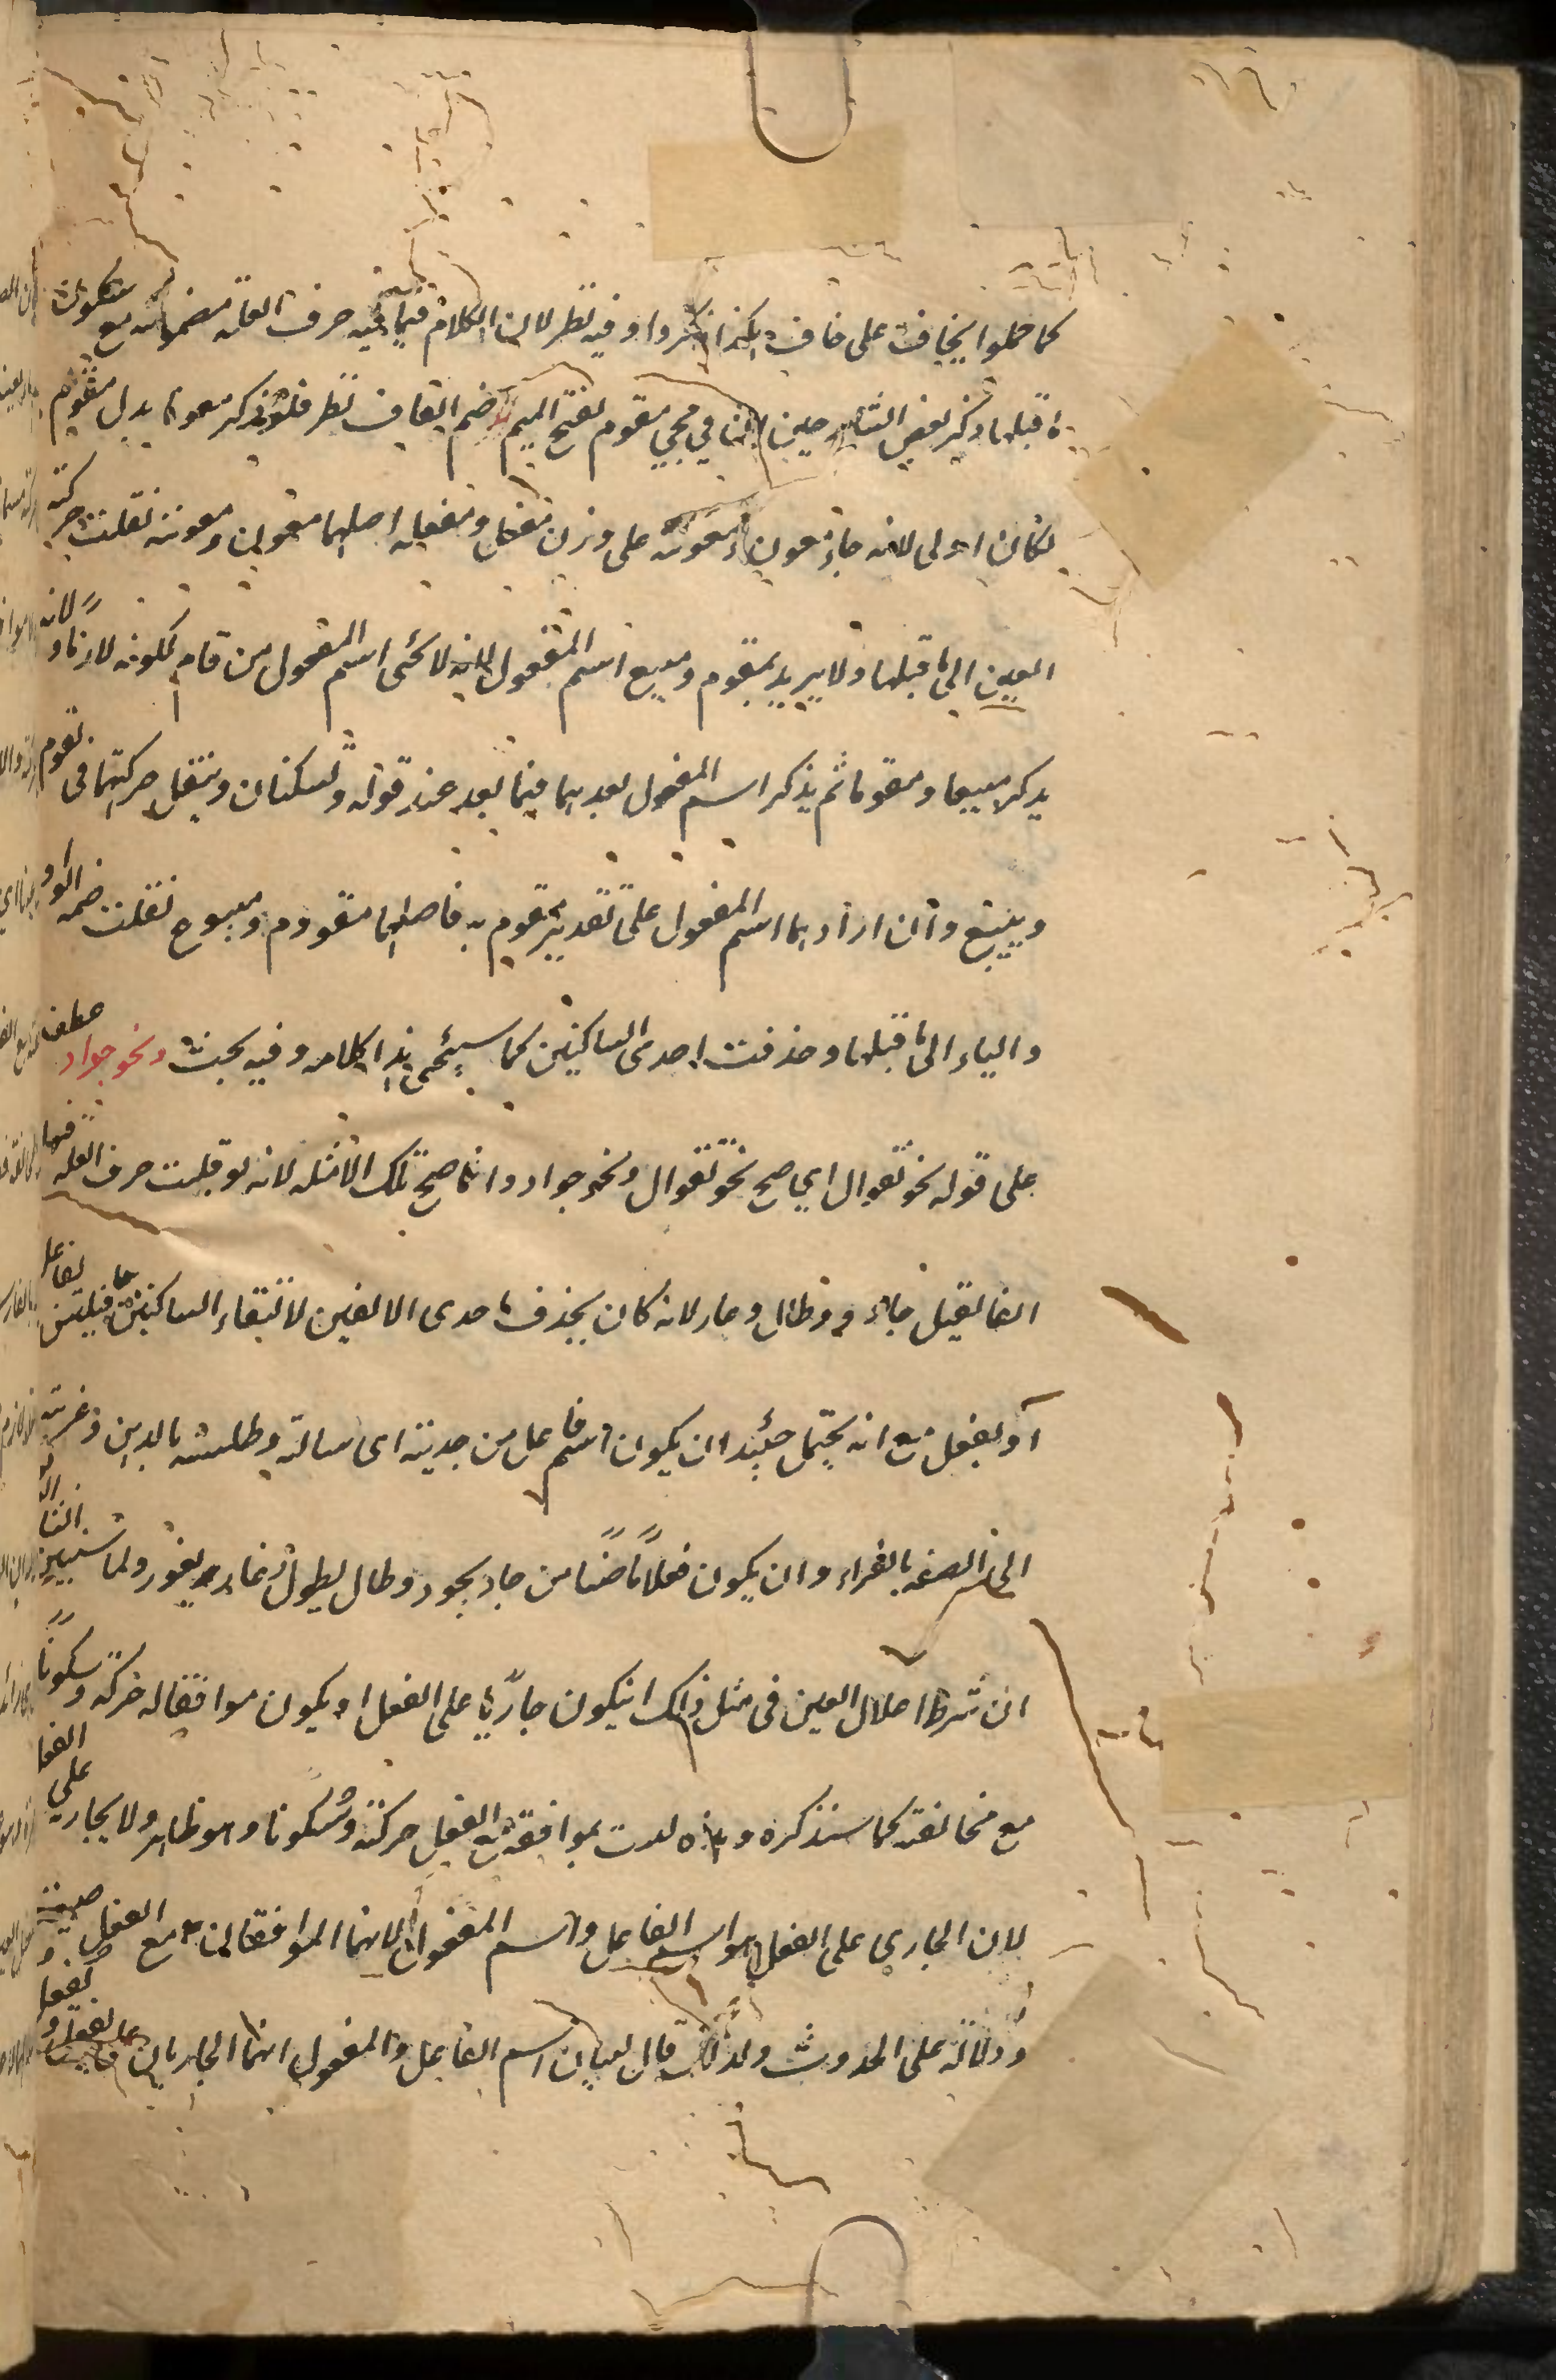 كما حملوا يخاف على خاف هكذا ذكروا وفيه نظر لان الكلام فيما فيه حرف العلة مضمومة مع سكون
ما قبلها وذكر بعض الشارحين لنا في مجيء مقوم بفتح الميم وضم القاف نظر فلو ذكر معونا بدل مقوم
لكان اولى لانه جاء معون ومعونة على وزن مفعل ومفعلة اصلهما معون ومعونة نقلت حركة
العين الى ما قبلها ولا يريد بمقوم ومبيع اسم المفعول لانه لا يجئ اسم المفعول من قام لكونه لازما ولانه
يذكر مبيعا ومقوما ثم يذكر اسم المفعول بعدهما فيما بعد عند قوله وتسكنان وينقل حركتهما في نحو يقوم
ويبيع وان اراد بهما اسم المفعول على تقدير مقوم به فاصلهما مقووم ومبيوع نقلت ضمة الواو
والياء الى ما قبلها وحذفت احدى الساكنين كما سيجئ هذا كلامه وفيه بحث ونحو جواد عطف
على قوله نحو تقوال اي صح نحو تقوال ونحو جواد وانما صح تلك الامثلة لانه لو قلبت حرف العلة فيها
الفا لقيل جاد وطال وغار لانه كان يحذف احدى الالفين لالتقاء الساكنين فيلتبس بفاعل
او بفعل مع انه يحتمل حينئذ ان يكون اسم فاعل من جديته اى سالته وطلسته بالدهن وغريته
الى الصفة بالغراء وان يكون فعلا ماضيا من جاد يجود وطال يطول وغار يغور ولما سنبين
ان شرط اعلال العين في مثل ذلك ان يكون جاريا على الفعل او يكون موافقا له حركة وسكونا
مع مخالفته كما سنذكره وهذه ليست بموافقة مع الفعل حركة وسكونا وهو ظاهر ولا بجارية على الفعل
لان الجاري على الفعل هو اسم الفاعل واسم المفعول لانهما الموافقان مع الفعل صيغة
ودلالة على الحدوث ولذلك قال اسم الفاعل والمفعول انهما الجاريان على يفعل